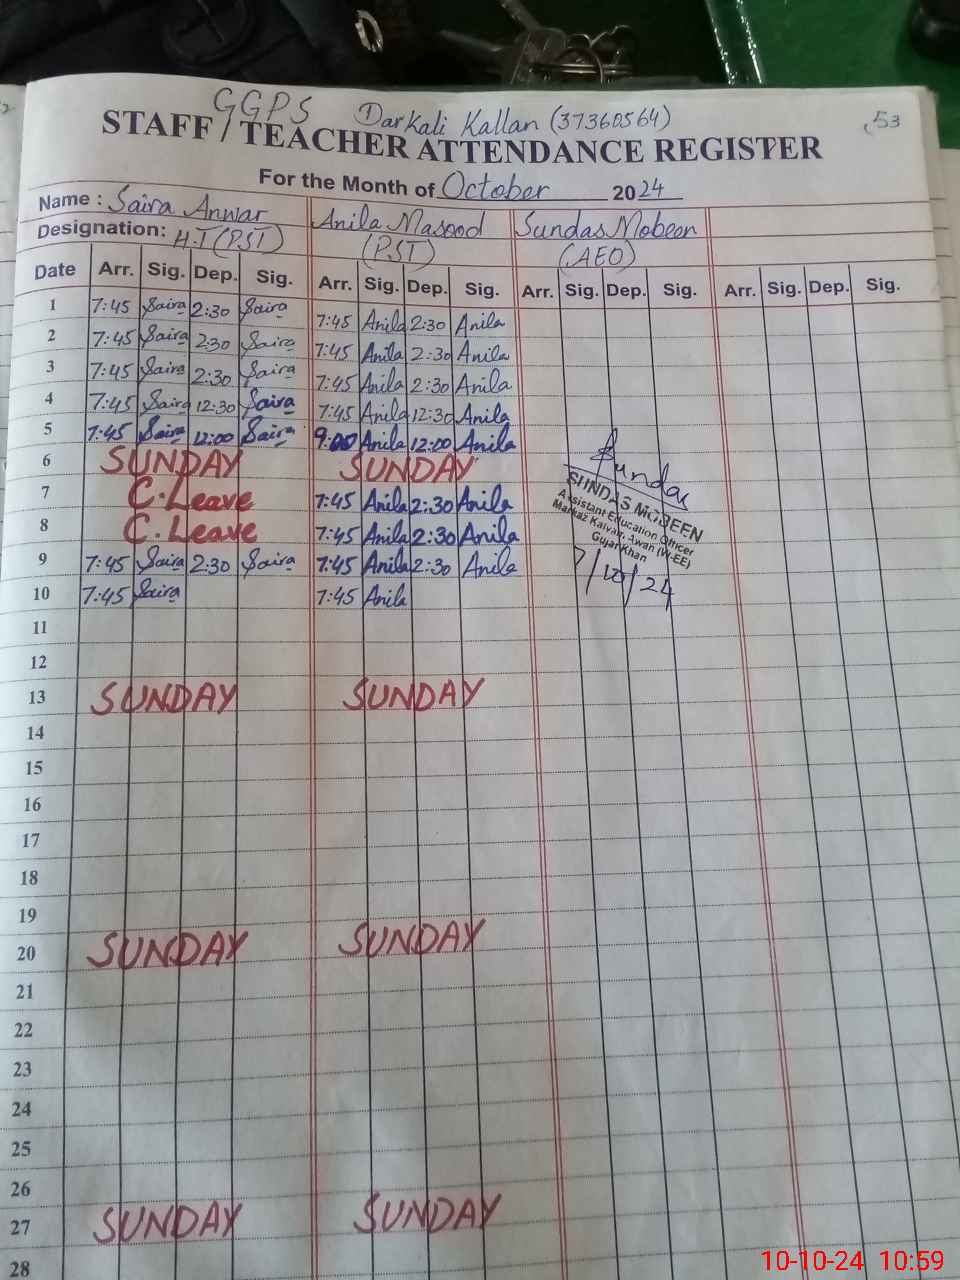 GGPS Darkali Kallan (37360564) 53
STAFF / TEACHER ATTENDANCE REGISTER
For the Month of October 2024
Name : Saira Anwar Anila Masood Sundas Mobeen
Designation: H.T (PST) (PST) (AEO)
Date Arr. Sig. Dep. Sig. Arr. Sig. Dep. Sig. Arr. Sig. Dep. Sig. Arr. Sig. Dep. Sig.
1 7:45 Saira 2:30 Saira 7:45 Anila 2:30 Anila
2 7:45 Saira 2:30 Saira 7:45 Anila 2:30 Anila
3 7:45 Saira 2:30 Saira 7:45 Anila 2:30 Anila
4 7:45 Saira 12:30 Saira 7:45 Anila 12:30 Anila
5 7:45 Saira 12:00 Saira 9:00 Anila 12:00 Anila
6 SUNDAY SUNDAY
7 C.Leave 7:45 Anila 2:30 Anila
8 C.Leave 7:45 Anila 2:30 Anila
9 7:45 Saira 2:30 Saira 7:45 Anila 2:30 Anila
10 7:45 Saira 7:45 Anila
Sundas
SUNDAS MOBEEN
Assistant Education Officer
Markaz Awan (W-EE)
Gujar Khan
7/10/24
11
12
13 SUNDAY SUNDAY
14
15
16
17
18
19
20 SUNDAY SUNDAY
21
22
23
24
25
26
27 SUNDAY SUNDAY
28
10-10-24 10:59